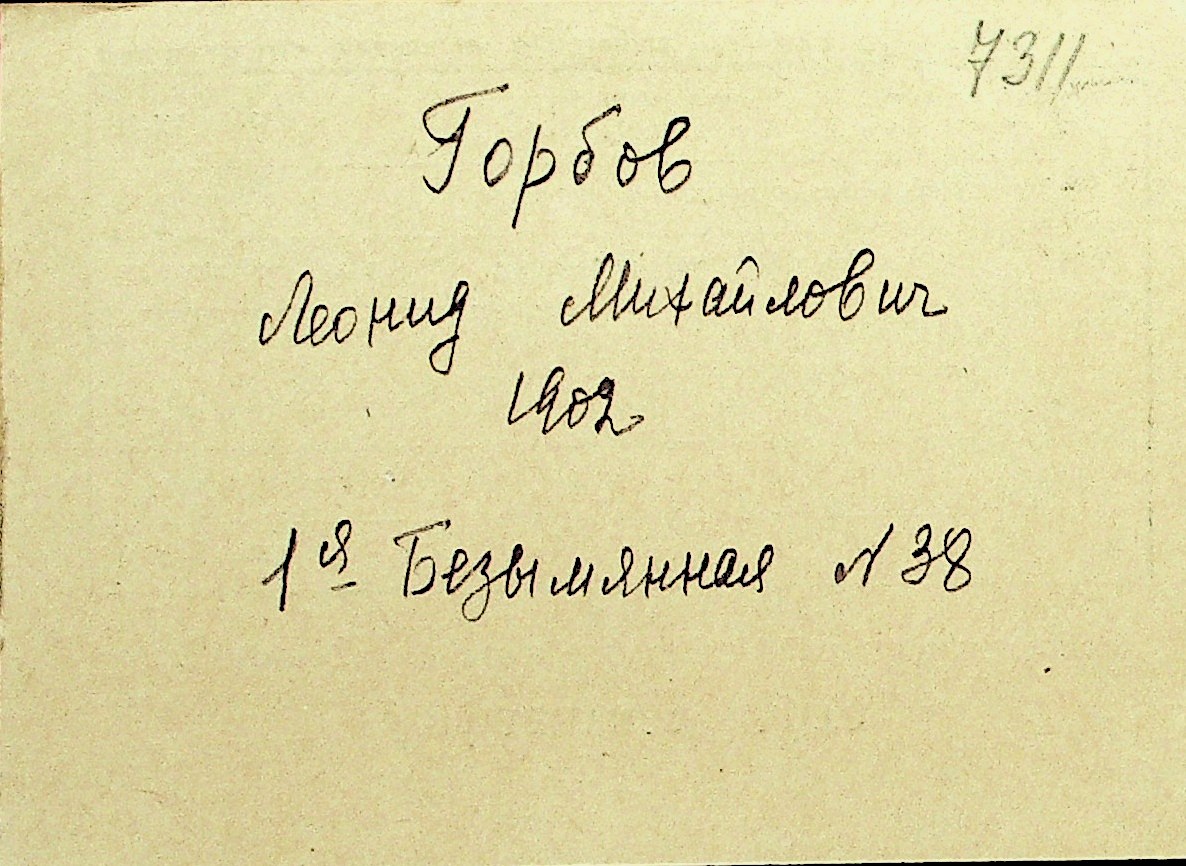 7311
Горбов
Леонид Михайлович
1902
1я Безымянная N 38